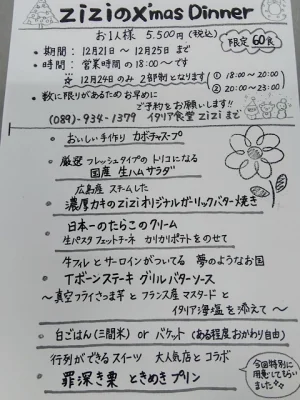 ziziのX'mas Dinner
お1人様 5.500円(税込)
限定60食
• 期間: 12月21日 〜 12月25日 まで
• 時間: 営業時間の 18:00 〜 です
☆ 12月24日のみ 2部制となります
① 18:00 〜 20:00
② 20:00 〜 23:00
• 数に限りがあるため お早めに
ご予約をお願いします!!
(089)-934-1379 イタリア食堂 zizi まで
• おいしい手作り カボチャスープ
• 厳選 フレッシュタイプの トリコになる
国産 生ハムサラダ
広島産 スチームした
• 濃厚カキの ziziオリジナルガーリックバター焼き
• 日本一のたらこのクリーム
生パスタ フェットチーネ カリカリポテトをのせて
• 牛フィレとサーロインがついてる 夢のようなお国
Tボーンステーキ グリルバターソース
〜真空フライさつま芋と フランス産マスタードと
イタリア海塩を添えて〜
• 白ごはん(三間米) or バケット (ある程度おかわり自由)
行列ができるスイーツ 大人気店とコラボ
• 罪深き栗 ときめきプリン
今回特別に
用意してもらい
ました